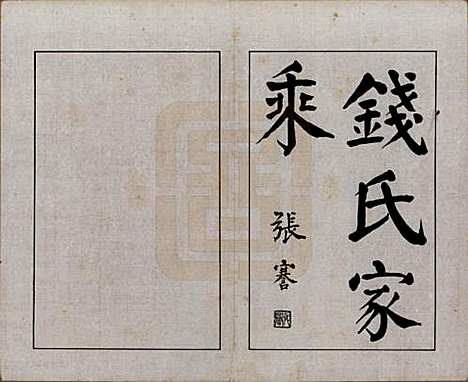 錢氏家
乘
張謇